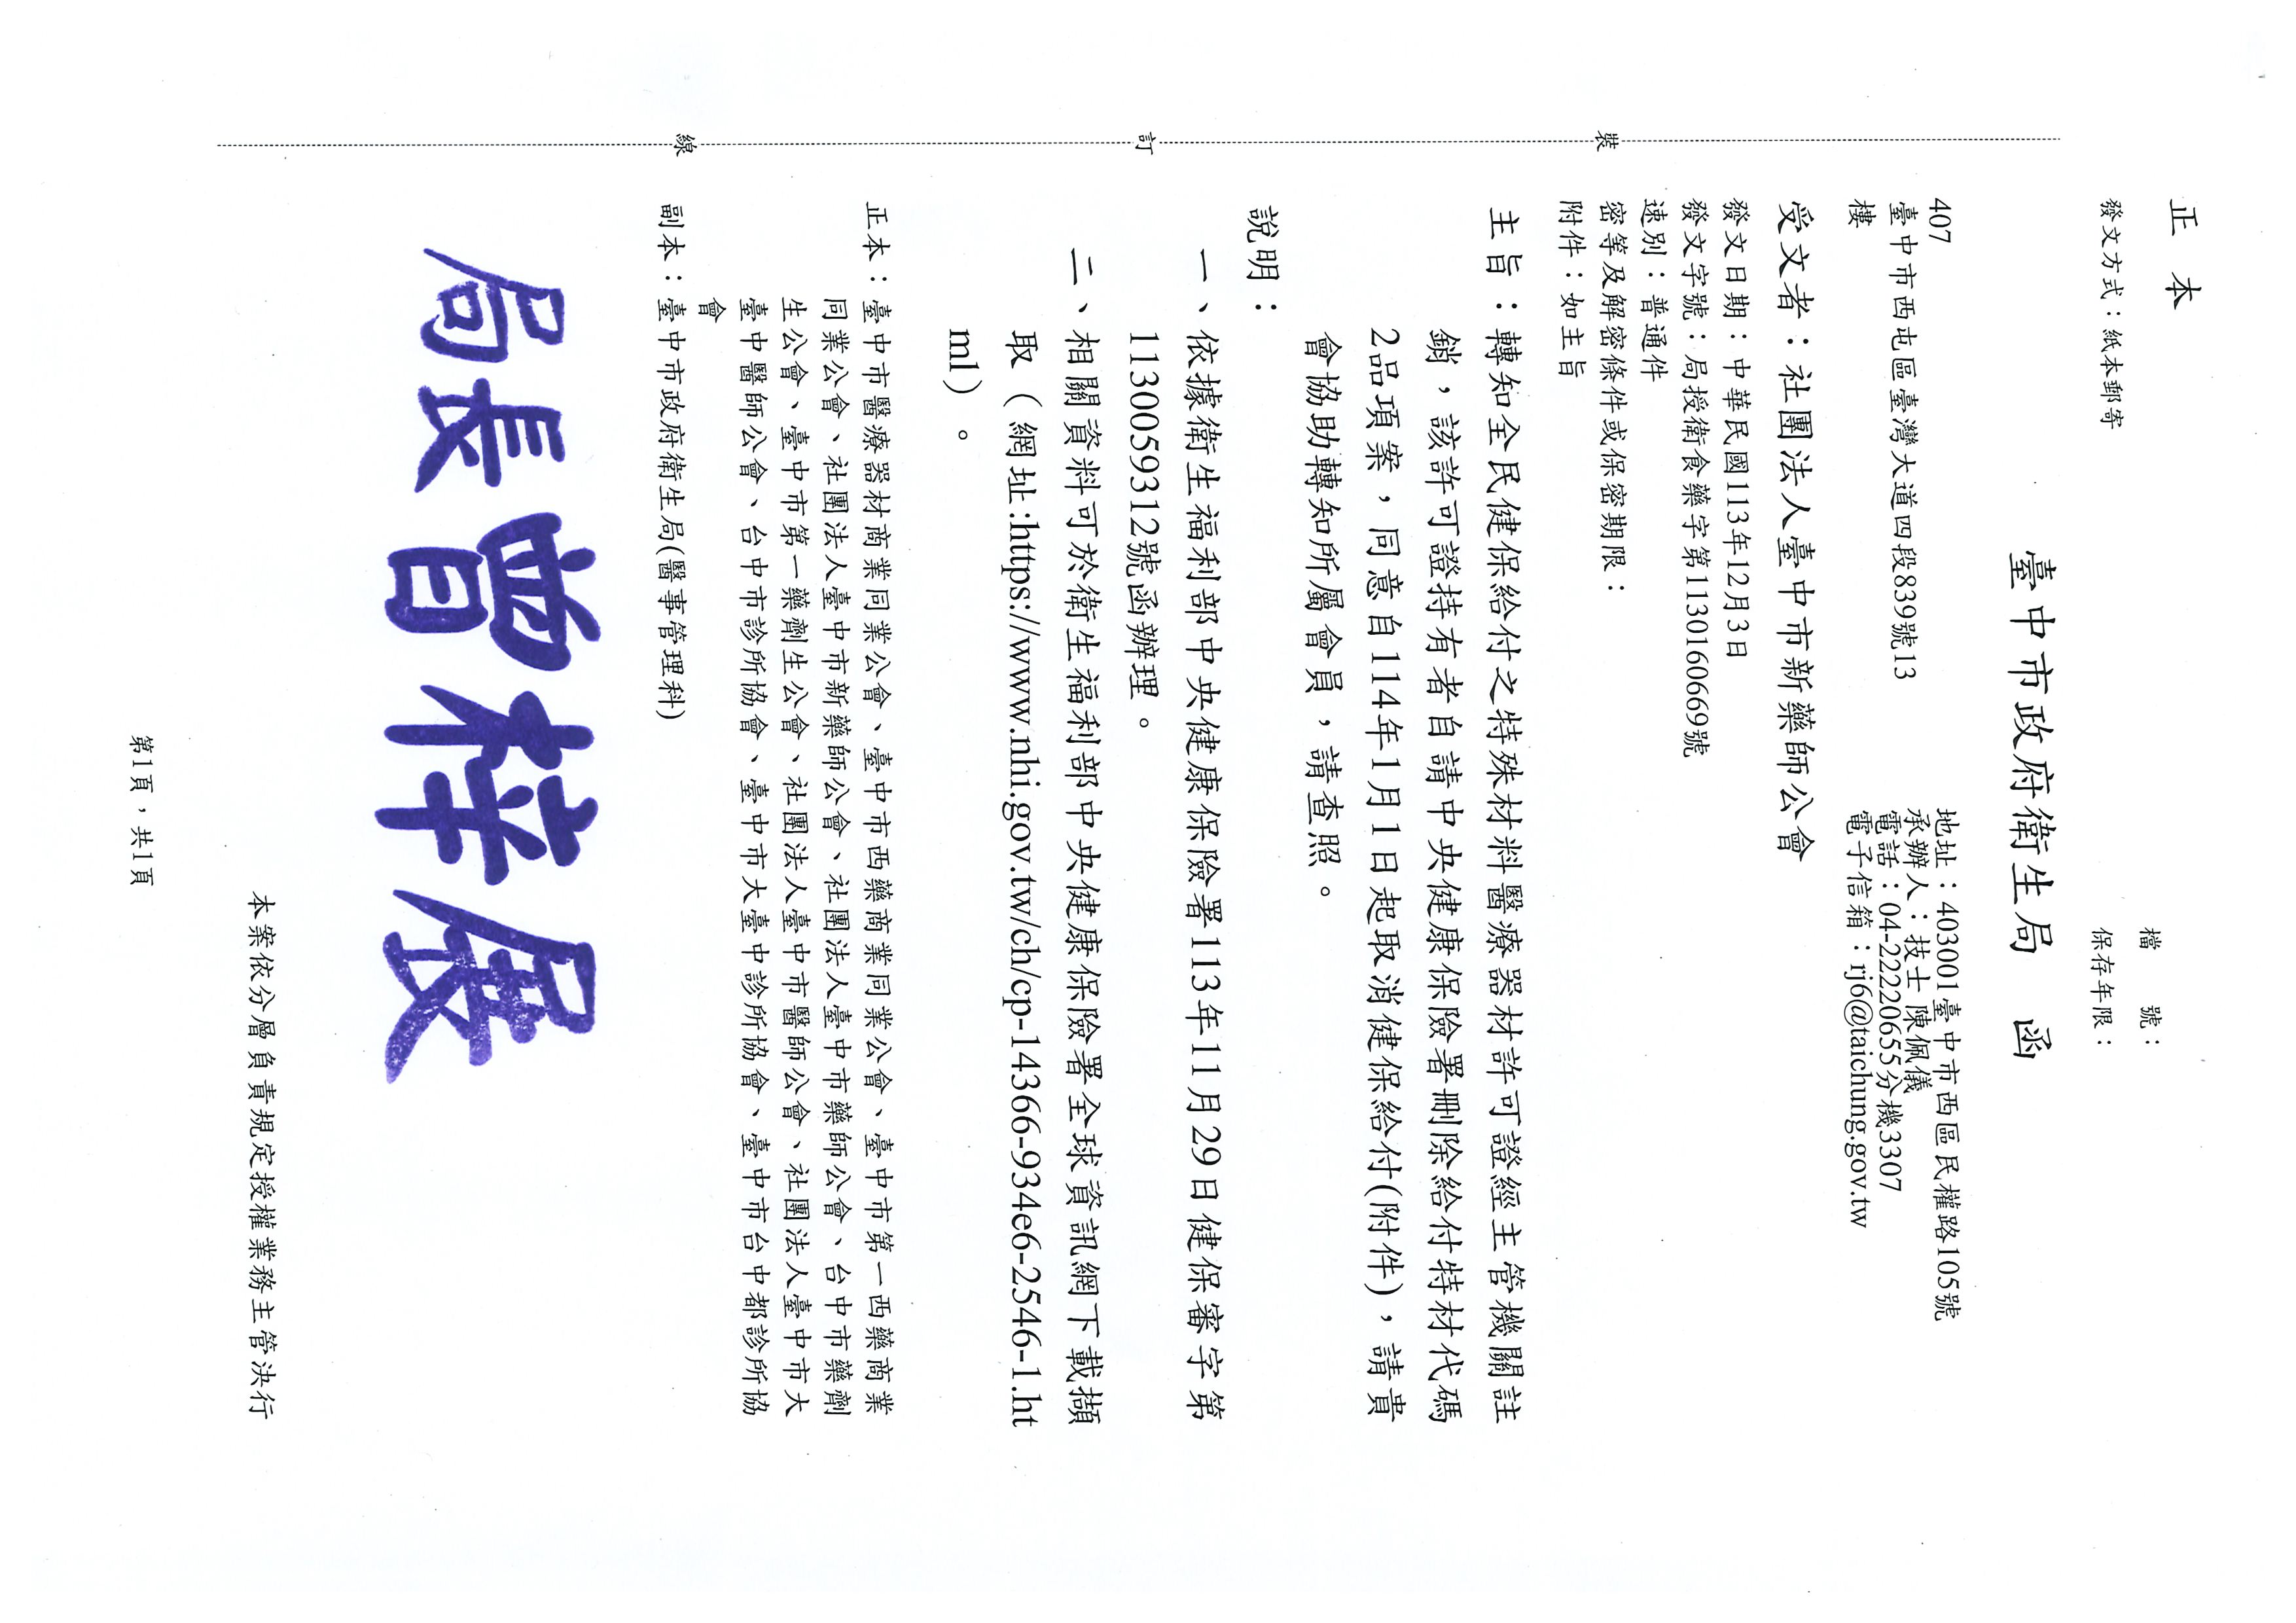 正本
發文方式：紙本郵寄
檔　　號：
保存年限：
臺中市政府衛生局　函
407
臺中市西屯區臺灣大道四段839號13
樓
地址：403001臺中市西區民權路105號
承辦人：技士 陳佩儀
電話：04-22220655分機3307
電子信箱：rj6@taichung.gov.tw
受文者：社團法人臺中市新藥師公會
發文日期：中華民國113年12月3日
發文字號：局授衛食藥字第1130160669號
速別：普通件
密等及解密條件或保密期限：
附件：如主旨
主旨：轉知全民健保給付之特殊材料醫療器材許可證經主管機關註
銷，該許可證持有者自請中央健康保險署刪除給付特材代碼
2品項案，同意自114年1月1日起取消健保給付(附件)，請貴
會協助轉知所屬會員，請查照。
說明：
一、依據衛生福利部中央健康保險署113年11月29日健保審字第
1130059312號函辦理。
二、相關資料可於衛生福利部中央健康保險署全球資訊網下載擷
取（網址:https://www.nhi.gov.tw/ch/cp-14366-934e6-2546-1.ht
ml）。
正本：臺中市醫療器材商業同業公會、臺中市西藥商業同業公會、臺中市第一西藥商業
同業公會、社團法人臺中市新藥師公會、社團法人臺中市藥師公會、台中市藥劑
生公會、臺中市第一藥劑生公會、社團法人臺中市醫師公會、社團法人臺中市大
臺中醫師公會、台中市診所協會、臺中市大臺中診所協會、臺中市台中都診所協
會
副本：臺中市政府衛生局(醫事管理科)
局長曾梓展
本案依分層負責規定授權業務主管決行
第1頁，共1頁
裝
訂
線